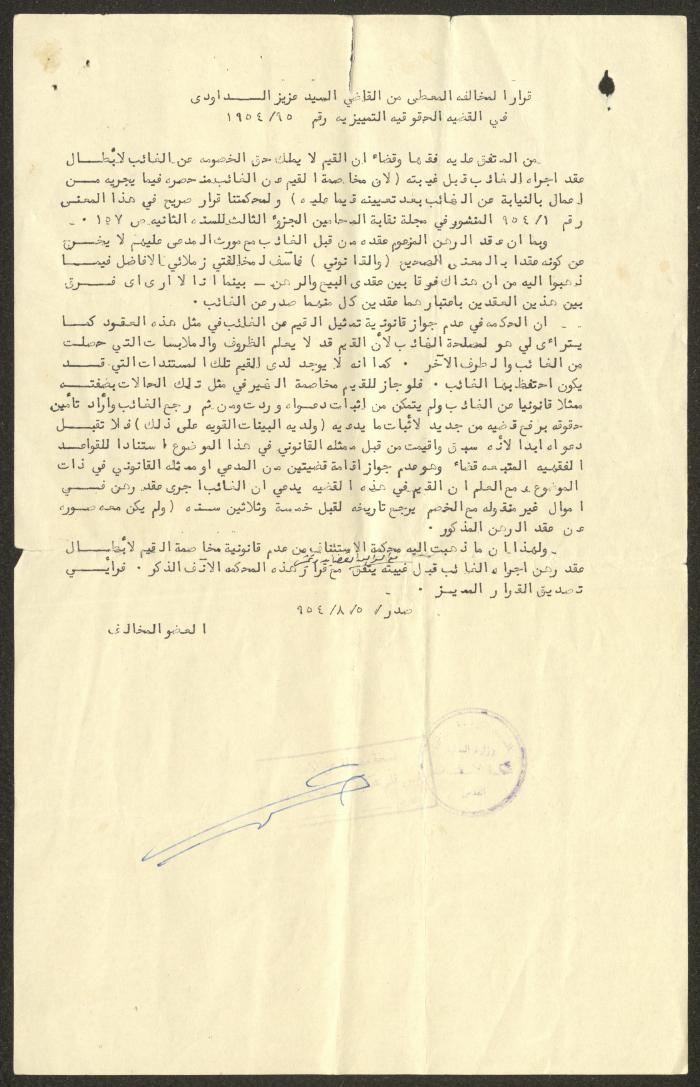 قرار المخالفه المعطى من القاضي السيد عزيز الـــداودى
في القضيه الحقوقيه التمييزيه رقم ١٩٥٤/٩٥
من المتفق عليه فقها وقضاء ان القيم لا يملك حق الخصومه عن الغائب لأبطـــال
عقد اجراه الغائب قبل غيبته (لان مخاصمة القيم عن الغائب منحصره فيما يجريه مـــن
اعمال بالنيابة عن الغائب بعد تعيينه قيما عليه) ولمحكمتنا قرار صريح في هذا المعنى
رقم ٩٥٤/١ المنشور في مجلة نقابة المحامين الجزؤ الثالث للسنه الثانيه ص ١٥٧ ٠ ـ
وبما ان عقد الرهن المزعوم عقده من قبل الغائب مع مورث المدعى عليهم لا يخـــرج
عن كونه عقدا بالمعنى الصحيح (والقانوني) فآسف لمخالفتي زملائي الافاضل فيمـــا
ذهبوا اليه من ان هناك فرقا بين عقدى البيع والرهن ــ بينما انا لا ارى اى فـــرق
بين هذين العقدين باعتبارهما عقدين كل منهما صدر عن الغائب ٠
ـ ـ ان الحكمه في عدم جواز قانونية تمثيل القيم عن الغائب في مثل هذه العقود كمـــا
يتراءى لي هو لمصلحة الغائب لأن القيم قد لا يعلم الظروف والملابسات التي حصلت
من الغائب والطرف الآخر ٠ كما انه لا يوجد لدى القيم تلك المستندات التي قـــد
يكون احتفظ بها الغائب ٠ فلو جاز للقيم مخاصمة الغير في مثل تلك الحالات بصفتـــه
ممثلا قانونيا عن الغائب ولم يتمكن من اثبات دعواه وردت ومن ثم رجع الغائب وأراد تأمين
حقوقه برفع قضيه من جديد لأثبات ما يدعيه (ولديه البينات القويه على ذلك) فلا تقبـــل
دعواه ابدا لأنه سبق واقيمت من قبل ممثله القانوني في هذا الموضوع استنادا للقواعـــد
الفقهيه المتبعه قضاء وهو عدم جواز اقامة قضيتين من المدعي او ممثله القانوني في ذات
الموضوع ـ مع العلم ان القيم في هذه القضيه يدعي ان الغائب اجرى عقد رهن فـــي
اموال غير منقوله مع الخصم يرجع تاريخه لقبل خمسة وثلاثين سنه (ولم يكن معه صوره
عن عقد الرهن المذكور ٠
ـ ولهذا ان ما ذهبت اليه محكمة الاستئناف من عدم قانونية مخاصمة القيم لأبطـــال
عقد رهن اجراه الغائب قبل غيبته يتفق مع قرار هذه المحكمه الآنف الذكر ٠ فرأيـــي
تصديق القرار المميـــز ٠ ـ
صدر في ٩٥٤/٨/٥
العضو المخالف